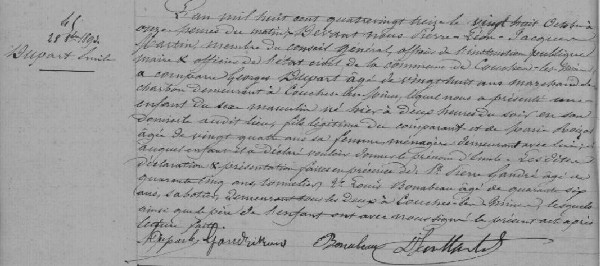 28 8bre 1896
Dupart Emile
L'an mil huit cent quatre vingt seize le vingt huit Octobre à
onze heures du matin, Devant nous Pierre Léon Jacques
Martin, membre du conseil général, officier de l'instruction publique
maire & officier de l'état civil de la commune de Couches-les-Mines
a comparu Georges Dupart âgé de vingt huit ans marchand de
charbon demeurant à Couches-les-Mines, lequel nous a présenté un
enfant du sexe masculin né hier à deux heures du soir en son
domicile audit lieu, fils légitime du comparant et de Marie
âgée de vingt quatre ans sa femme, ménagère demeurant avec lui;
auquel enfant il a déclaré vouloir donner le prénom d'Emile. Les dites
déclaration & présentation faites en présence de 1° Pierre Landré âgé de
quarante cinq ans, tonnelier, 2° Louis Bonabeau âgé de quarante six
ans, sabotier, demeurant tous les deux à Couches-les-Mines, lesquels
ainsi que le père de l'enfant ont avec nous signé le présent acte après
lecture faite.
Dupart Bonabeau Léon Martin